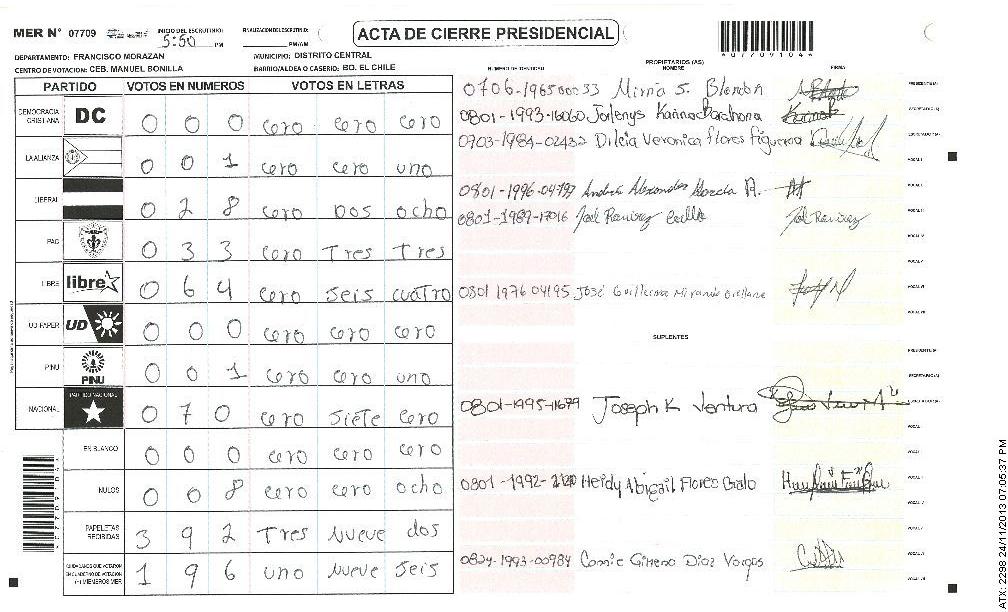 MER N° 07709 INICIO DEL ESCRUTINIO: 5:50 PM FINALIZACION DEL ESCRUTINIO: PM/AM ACTA DE CIERRE PRESIDENCIAL
DEPARTAMENTO: FRANCISCO MORAZAN MUNICIPIO: DISTRITO CENTRAL
CENTRO DE VOTACION: CEB. MANUEL BONILLA BARRIO/ALDEA O CASERIO: BO. EL CHILE
NUMERO DE IDENTIDAD PROPIETARIOS (AS) NOMBRE FIRMA
PARTIDO VOTOS EN NUMEROS VOTOS EN LETRAS
DEMOCRACIA CRISTIANA DC 0 0 0 cero cero cero
LA ALIANZA 0 0 1 cero cero uno
LIBERAL 0 2 8 cero Dos ocho
PAC 0 3 3 cero Tres Tres
LIBRE libre 0 6 4 cero seis cuatro
UD FAPER UD 0 0 0 cero cero cero
PINU PINU 0 0 1 cero cero uno
NACIONAL PARTIDO NACIONAL 0 7 0 cero siete cero
EN BLANCO 0 0 0 cero cero cero
NULOS 0 0 8 cero cero ocho
PAPELETAS RECIBIDAS 3 9 2 Tres Nueve dos
CIUDADANOS QUE VOTARON EN CUADERNO DE VOTACION (+) MIEMBROS MER 1 9 6 uno Nueve seis
0706-1965000 33 Mirna S.
0801-1993-16060 Jorlenys Karina Barahona
0703-1984-02432 Dilcia Veronica Flores Figueroa
0801-1996-04797 Andrés Alexander
0801-1989-17016 Joel Ramirez Joel Ramirez
0801 1976 04195 José Guillermo Miranda Orellana
SUPLENTES
0801-1995-11679 Joseph K Ventura
0801-1992- Heidy Abigail Flores
0824-1993-00984 Gimena Diaz Vargas
ATX: 2298 24/11/2013 07:05:37 PM